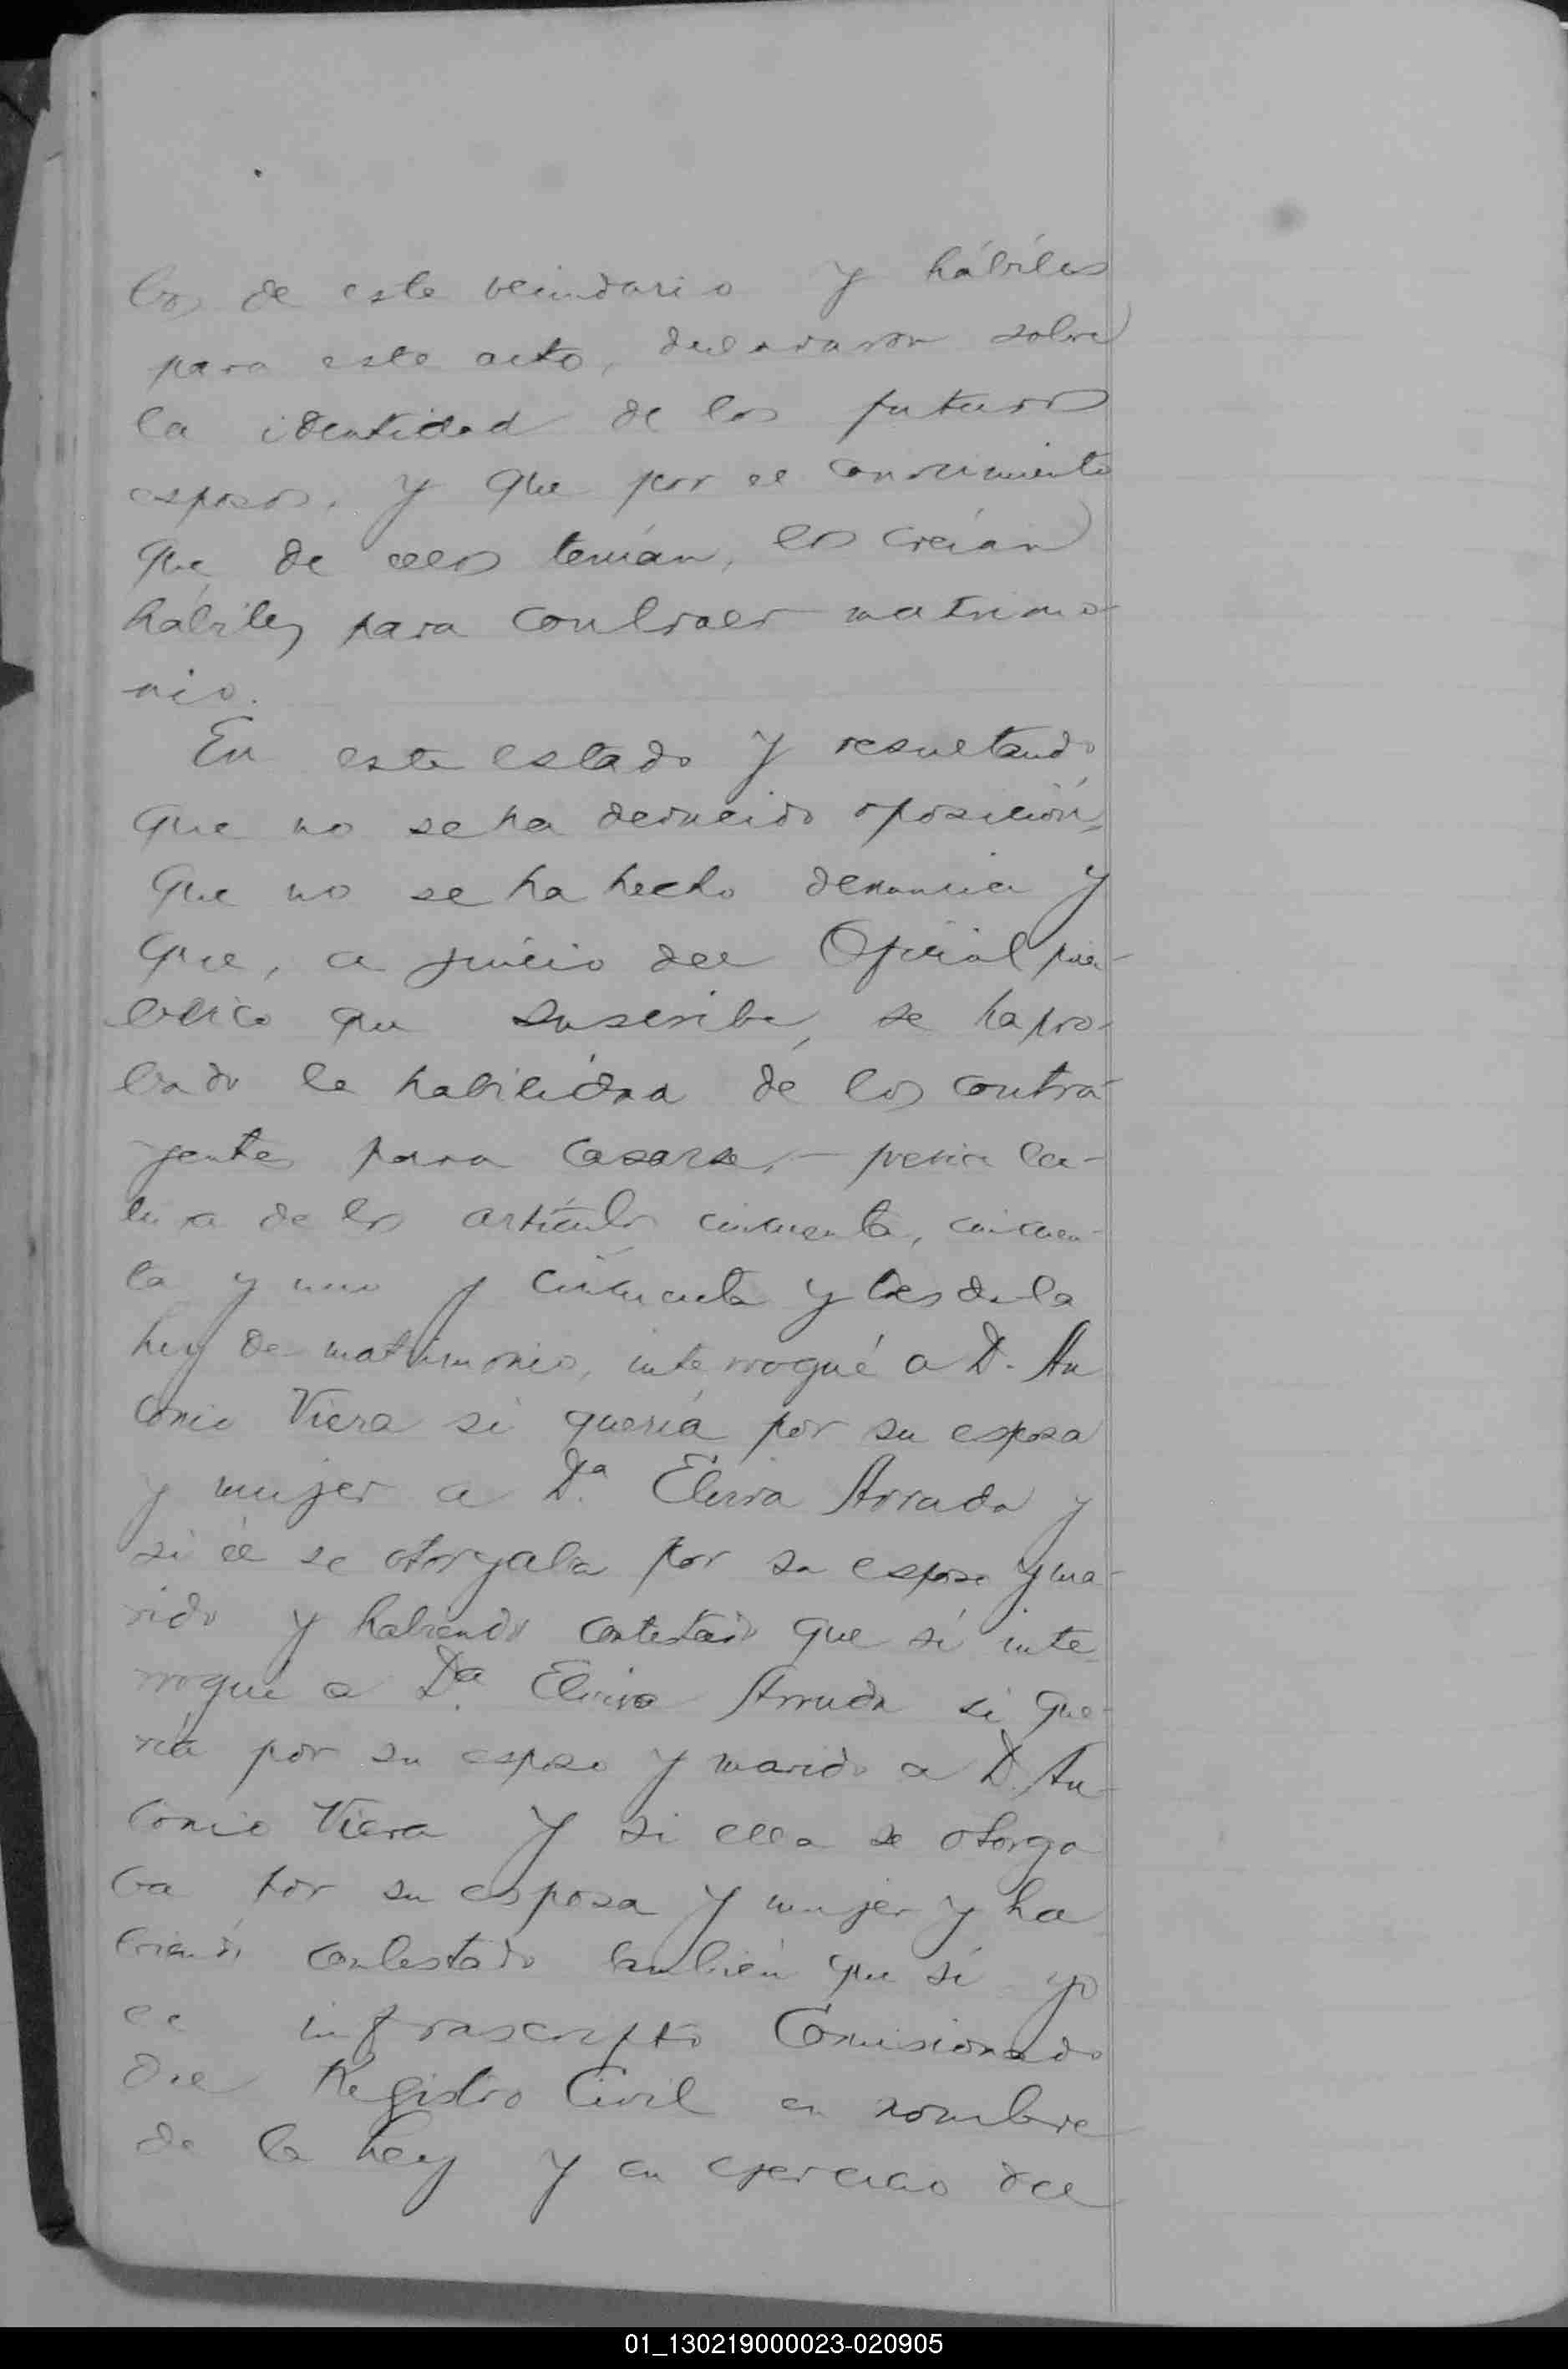 bos de este vecindario y hábiles
para este acto, declararon sobre
la identidad de los futuros
esposos, y que por el conocimiento
que de ellos tenían, los creían
hábiles para contraer matrimo-
nio.
En este estado y resultando
que no se ha deducido oposición,
que no se ha hecho denuncia y
que, a juicio del Oficial pú-
blico que suscribe, se ha pro-
bado la habilidad de los contra-
yentes para casarse, previa lec-
tura de los artículos cincuenta, cincuen-
ta y uno y cincuenta y tres de la
Ley de matrimonio, interrogué a D. An
tonio Viera si quería por su esposa
y mujer a Da. Elvira Arruda y
si él se otorgaba por su esposo y ma-
rido y habiendo contestado que sí inte-
rrogué a Da. Elvira Arruda si que-
ría por su esposo y marido a D. An-
tonio Viera y si ella se otorga
ba por su esposa y mujer y ha
biendo contestado también que sí yo
el infrascripto Comisionado
del Registro Civil en nombre
de la Ley y en ejercicio del
01_130219000023-020905